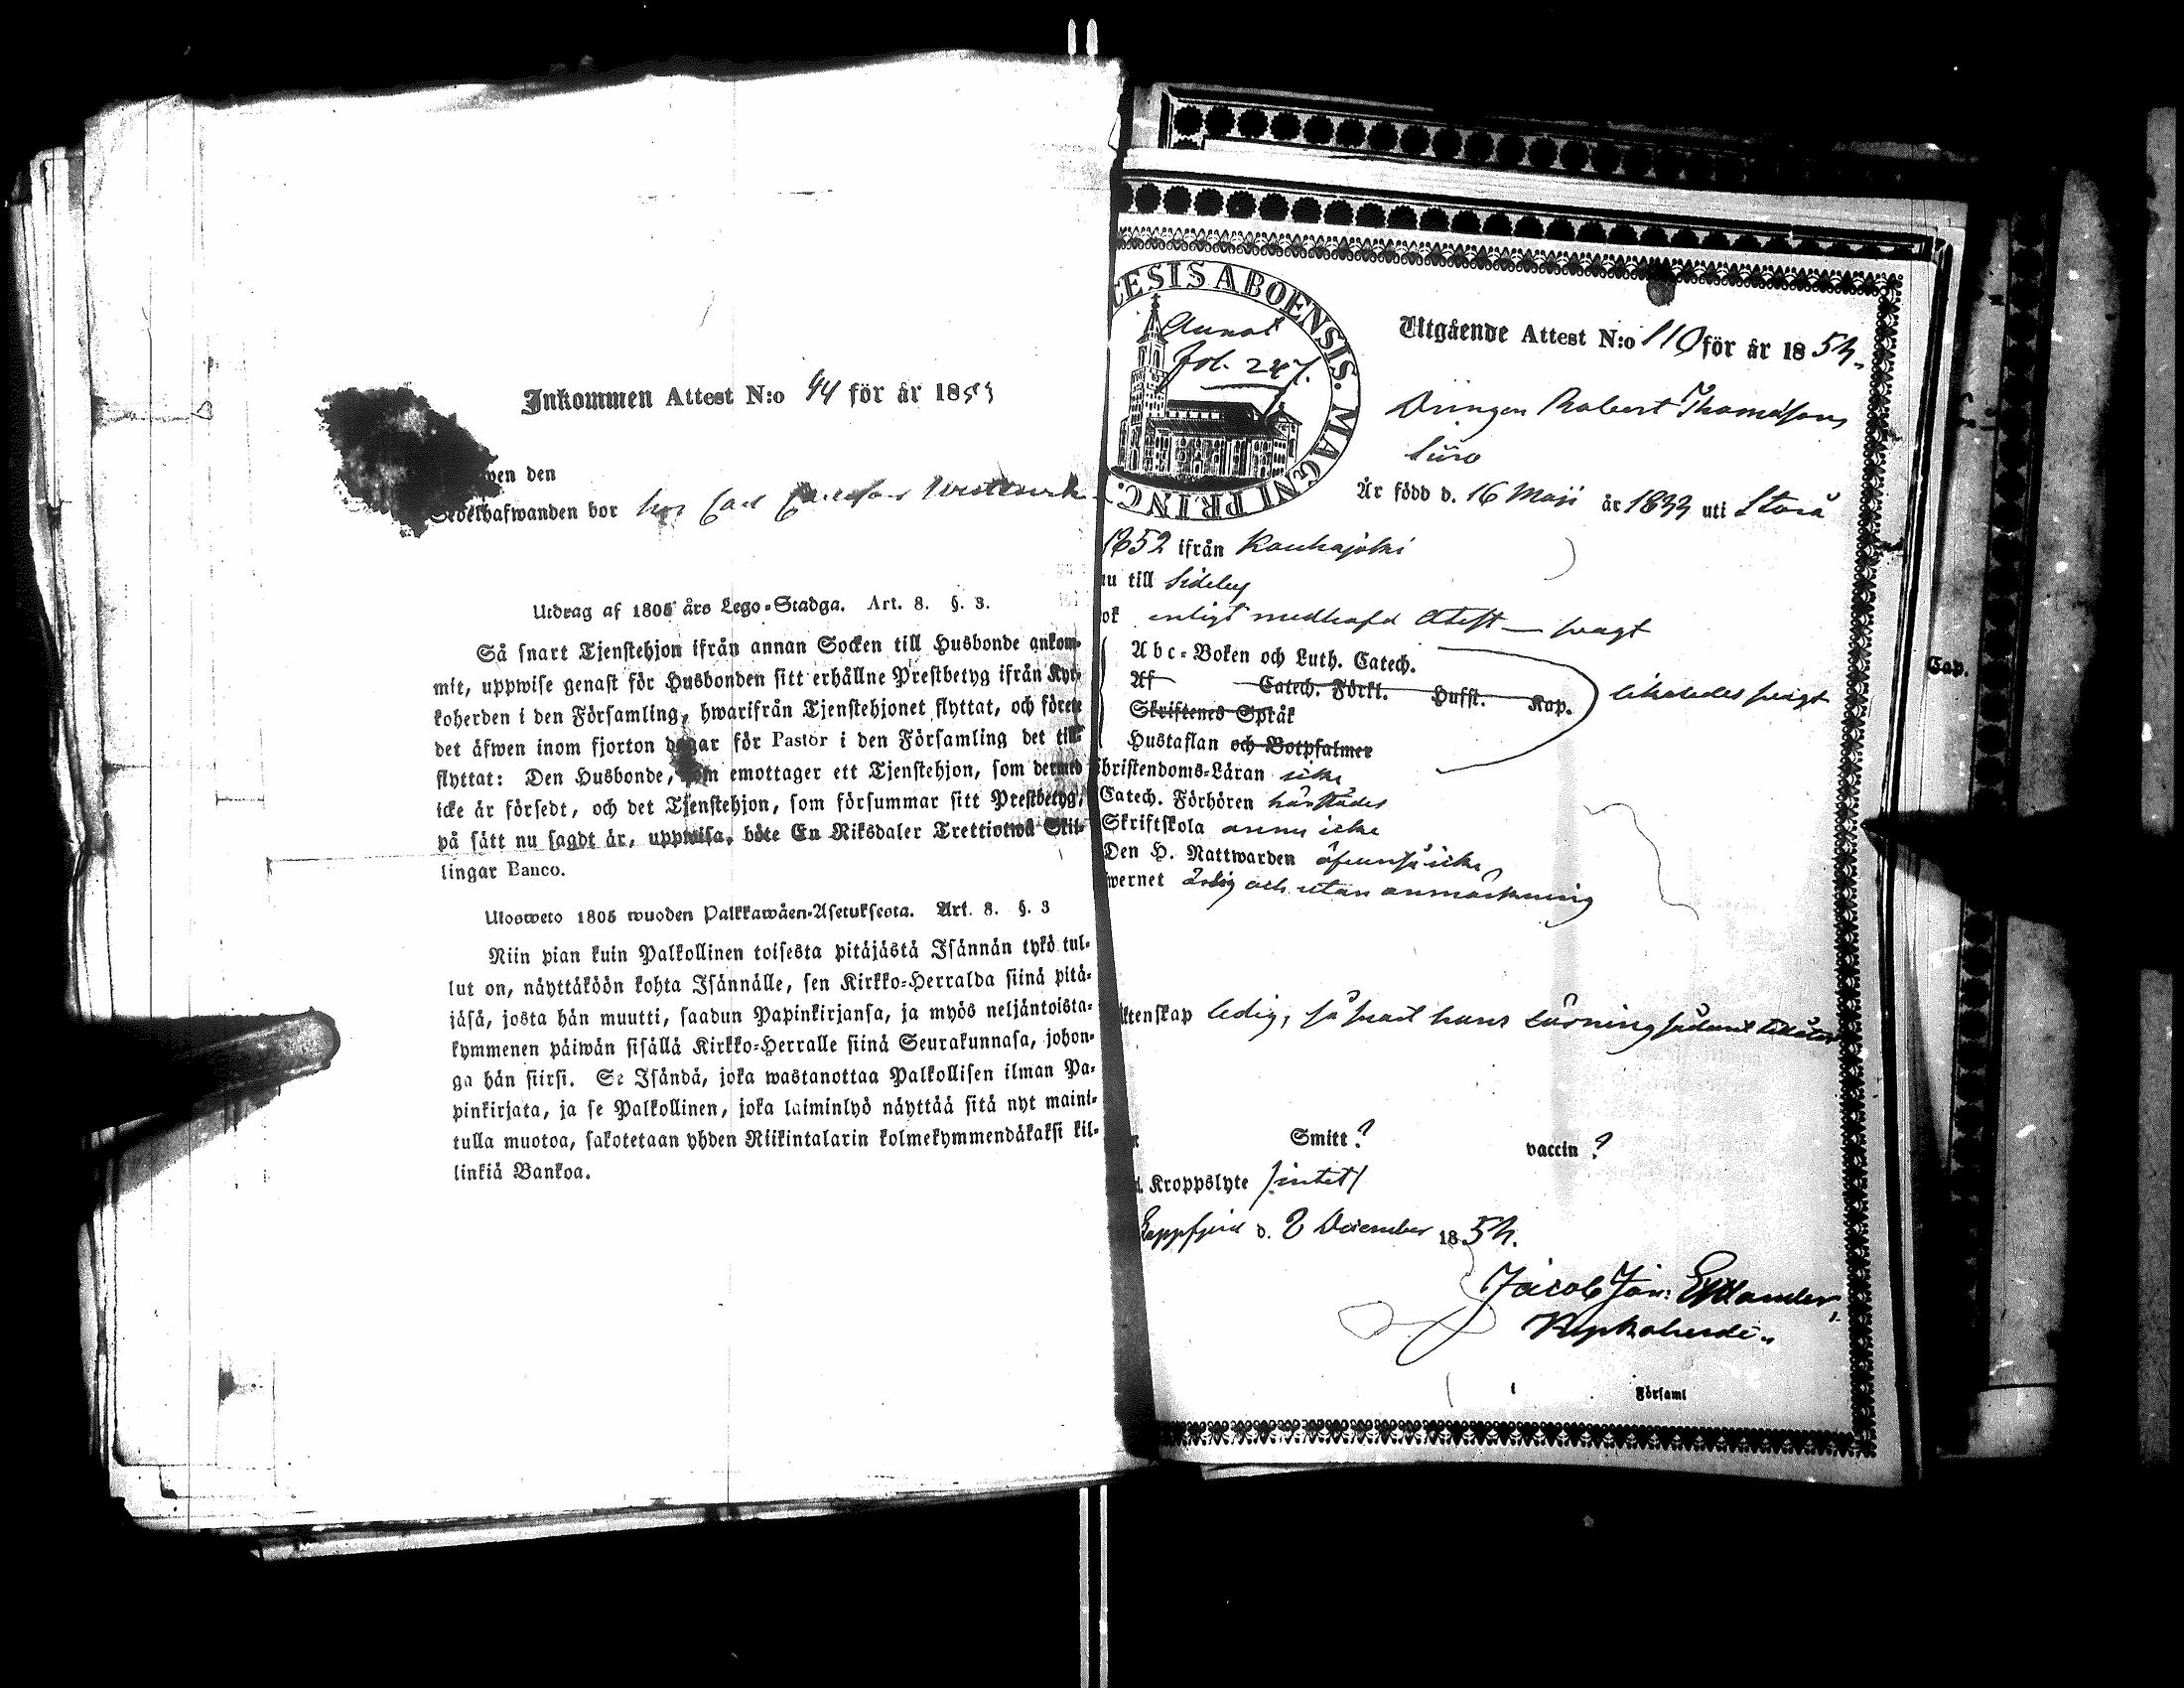 Inkommen Attest N:o 44 för år 1853
wen den
Sedelhafwanden bor hos Carl
Utdrag af 1805 års Lego-Stadga. Art. 8. §. 3.
Så snart Tjenstehjon ifrån annan Socken till Husbonde ankom-
mit, uppwise genast för Husbonden sitt erhållne Prestbetyg ifrån Kyr-
koherden i den Församling, hwarifrån Tjenstehjonet flyttat, och förete
det äfwen inom fjorton dagar för Pastor i den Församling det till
flyttat: Den Husbonde, som emottager ett Tjenstehjon, som dermed
icke är försedt, och det Tjenstehjon, som försummar sitt Prestbetyg,
på sätt nu sagdt är, uppwisa, böte En Riksdaler Trettiotwå Skil-
lingar Banco.
Ulosweto 1805 wuoden Palkkawäen-Asetuksesta. Art. 8. §. 3
Niin pian kuin Palkollinen toisesta pitäjästä Isännän tykö tul-
lut on, näyttäköön kohta Isännälle, sen Kirkko-Herralda siinä pitä-
jäsä, josta hän muutti, saadun Papinkirjansa, ja myös neljäntoista-
kymmenen päiwän sisällä Kirkko-Herralle siinä Seurakunnasa, johon-
ga hän siirsi. Se Isändä, joka wastanottaa Palkollisen ilman Pa-
pinkirjata, ja se Palkollinen, joka laiminlyö näyttää sitä nyt maini-
tulla muotoa, sakotetaan yhden Riikintalarin kolmekymmendäkaksi kil-
linkiä Bankoa.
CESIS ABOENSIS. MAGNI PRINC.
Annot
fol. 247.
Utgående Attest N:o 110 för år 1854.
Drängen Robert Thomasson
Siiro
Är född d. 16 Maji år 1833 uti Storå
1852 ifrån Kauhajoki
nu till Sideby
ok enligt medhafd Attest — swagt
Abc-Boken och Luth. Catech.
Af Catech. Förkl. Hufst. Kap. likaledes swagt
Skriftenes Språk
Hustaflan och Botpsalmer
Christendoms-Läran icke
Catech. Förhören härstädes
Skriftskola ännu icke
Den H. Nattwarden äfwenså icke
wernet ärlig och utan anmärkning
ktenskap ledig, så snart hans lärning sådant tillåter
Smitt ? vaccin ?
d. Kroppslyte /intet/
Lappfjerd d. 8 December 1854.
Jacob Joh: Estlander,
Kyrkoherde
i Församl
Cap.